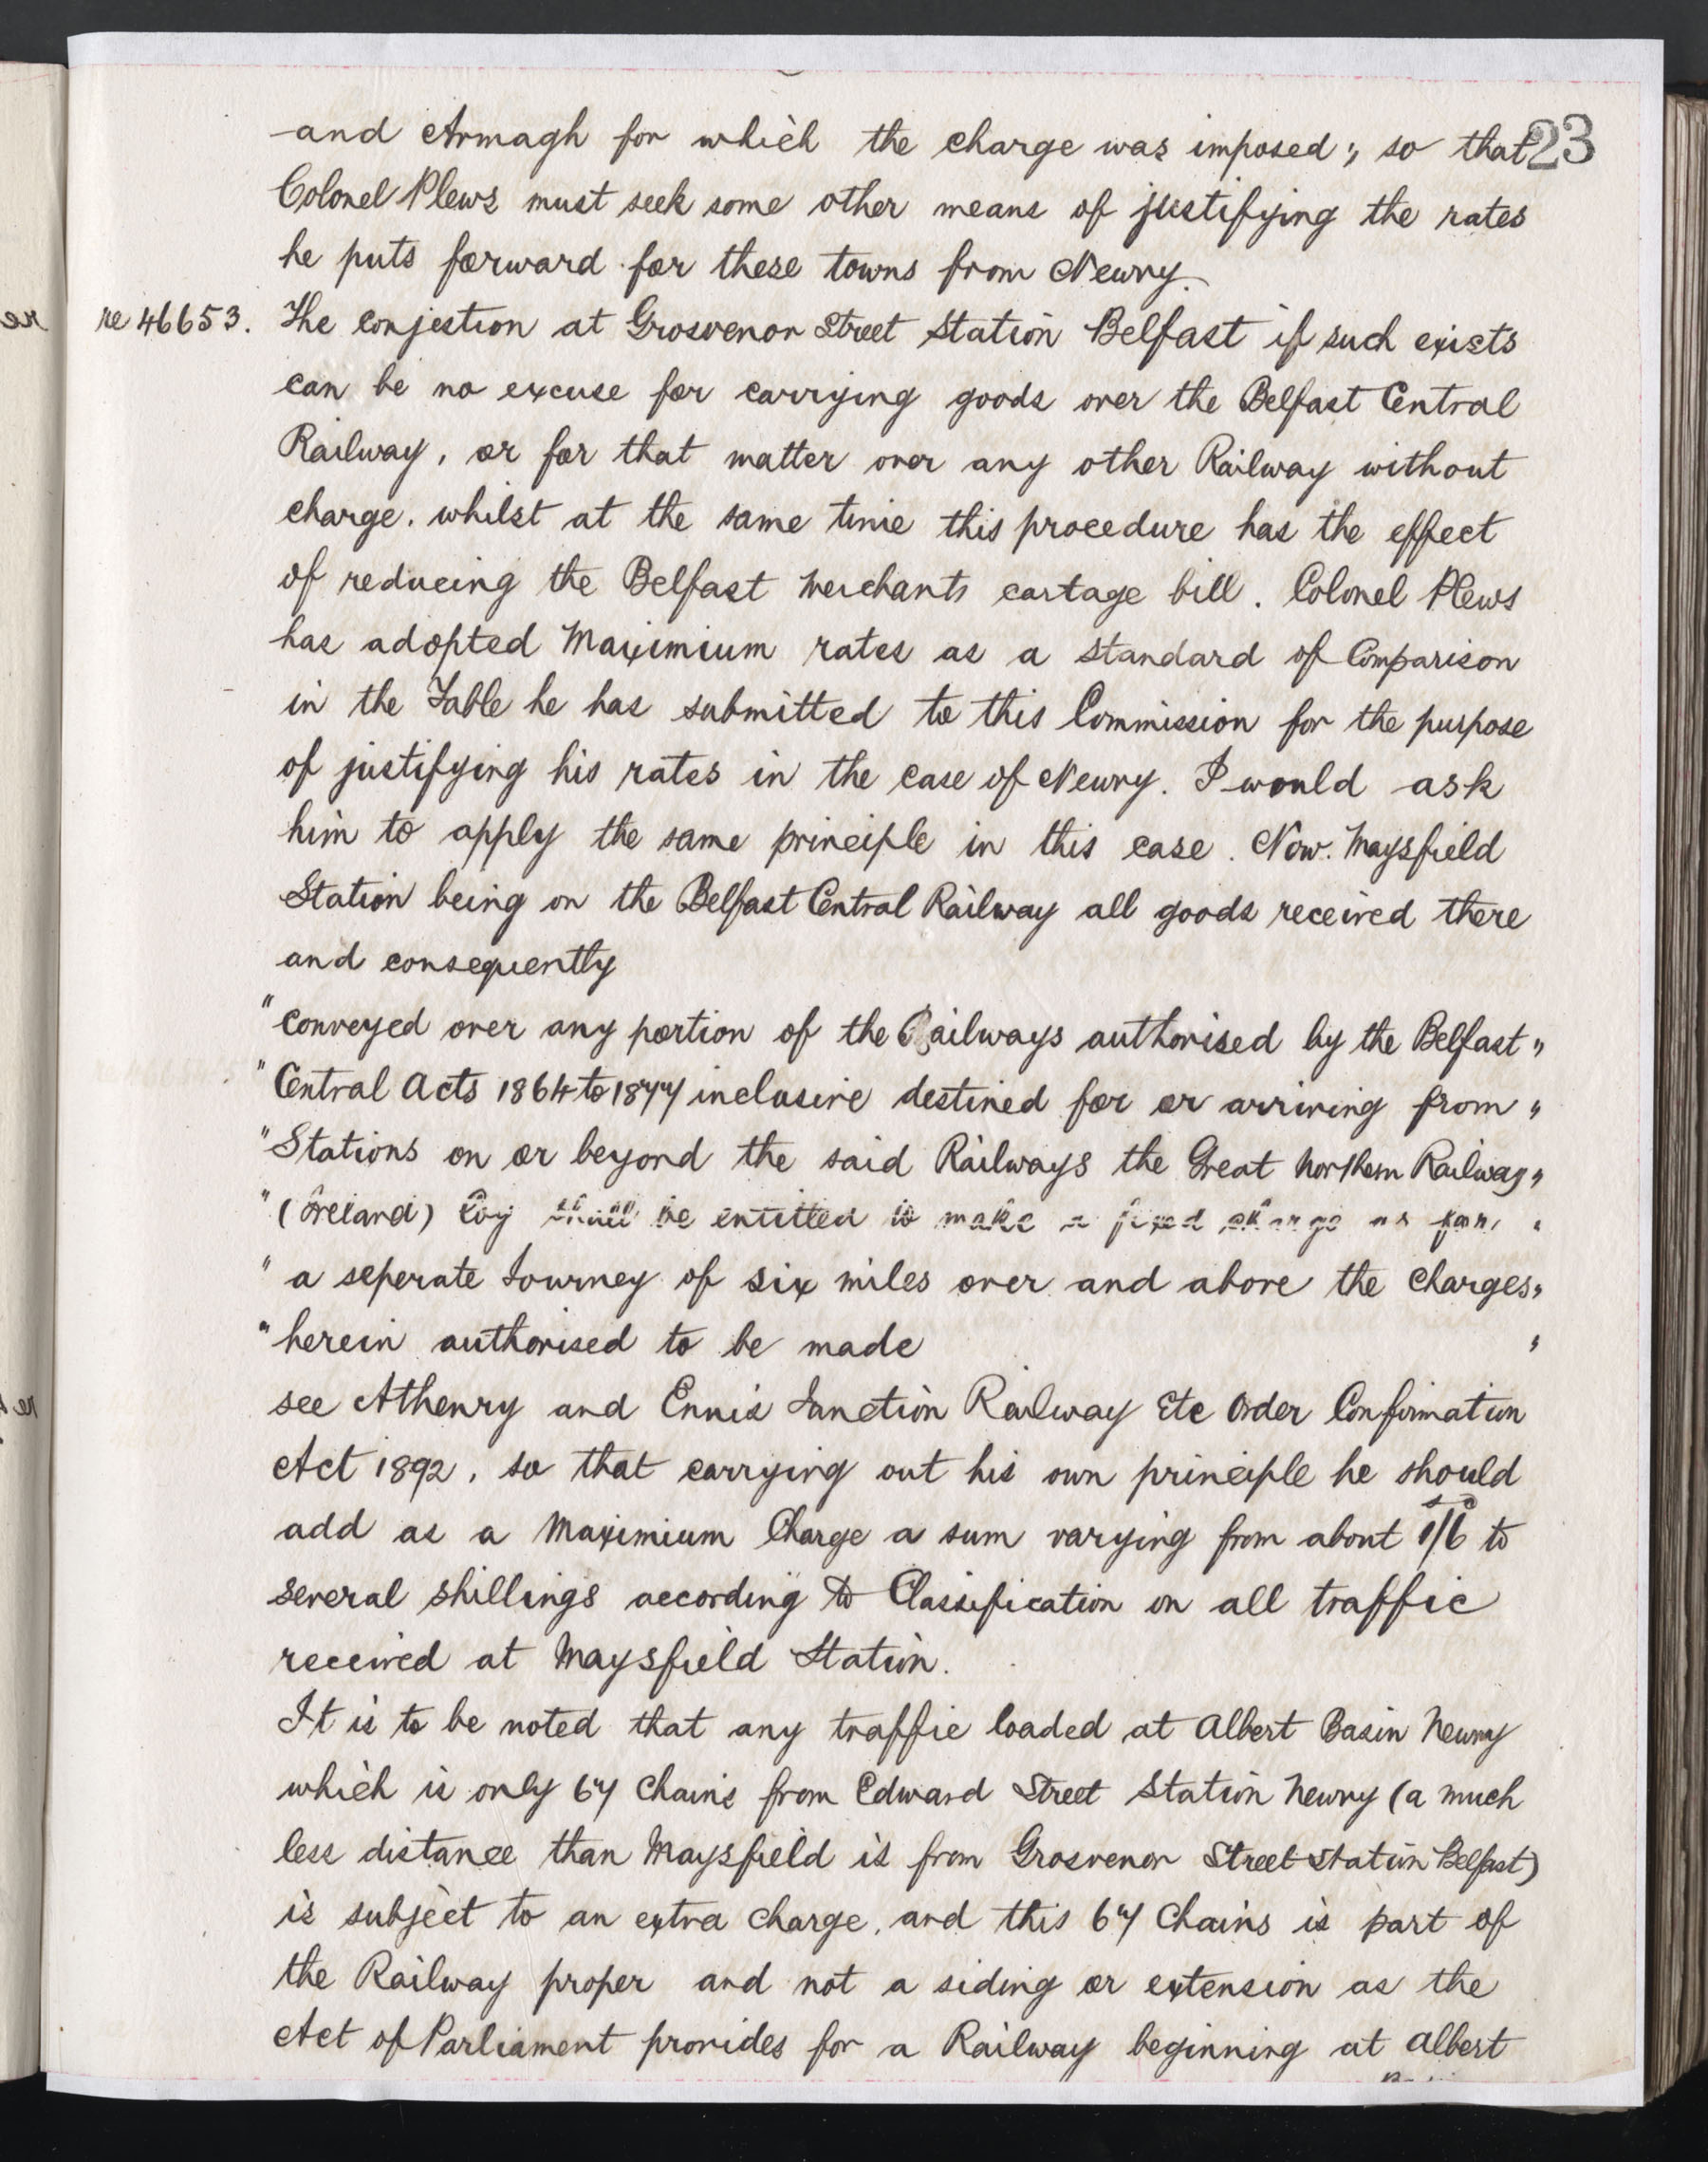 23
and Armagh for which the charge was imposed, so that
Colonel Plews must seek some other means of justifying the rates
he puts forward for these towns from Newry.
re 46653. The conjestion at Grosvenor Street Station Belfast if such exists
can be no excuse for carrying goods over the Belfast Central
Railway, or for that matter over any other Railway without
charge. whilst at the same time this procedure has the effect
of reducing the Belfast Merchants cartage bill. Colonel Plews
has adopted Maximium rates as a standard of Comparison
in the Table he has submitted to this Commission for the purpose
of justifying his rates in the case of Newry. I would ask
him to apply the same principle in this case. Now. Maysfield
Station being on the Belfast Central Railway all goods received there
and consequently
"conveyed over any portion of the Railways authorised by the Belfast "
"Central Acts 1864 to 1877 inclusive destined for or arriving from "
"Stations on or beyond the said Railways the Great Northern Railway "
"(Ireland) Coy shall be entitled to make a fixed charge as for "
"a seperate Journey of six miles over and above the charges "
"herein authorised to be made "
see Athenry and Ennis Junction Railway Etc Order Confirmation
Act 1892, so that carrying out his own principle he should
add as a Maximium Charge a sum varying from about 1/6 to
several shillings according to Classification on all traffic
received at Maysfield Station.
It is to be noted that any traffic loaded at Albert Basin Newry
which is only 67 Chains from Edward Street Station Newry (a much
less distance than Maysfield is from Grosvenor Street Station Belfast)
is subject to an extra charge, and this 67 Chains is part of
the Railway proper and not a siding or extension as the
Act of Parliament provides for a Railway beginning at Albert